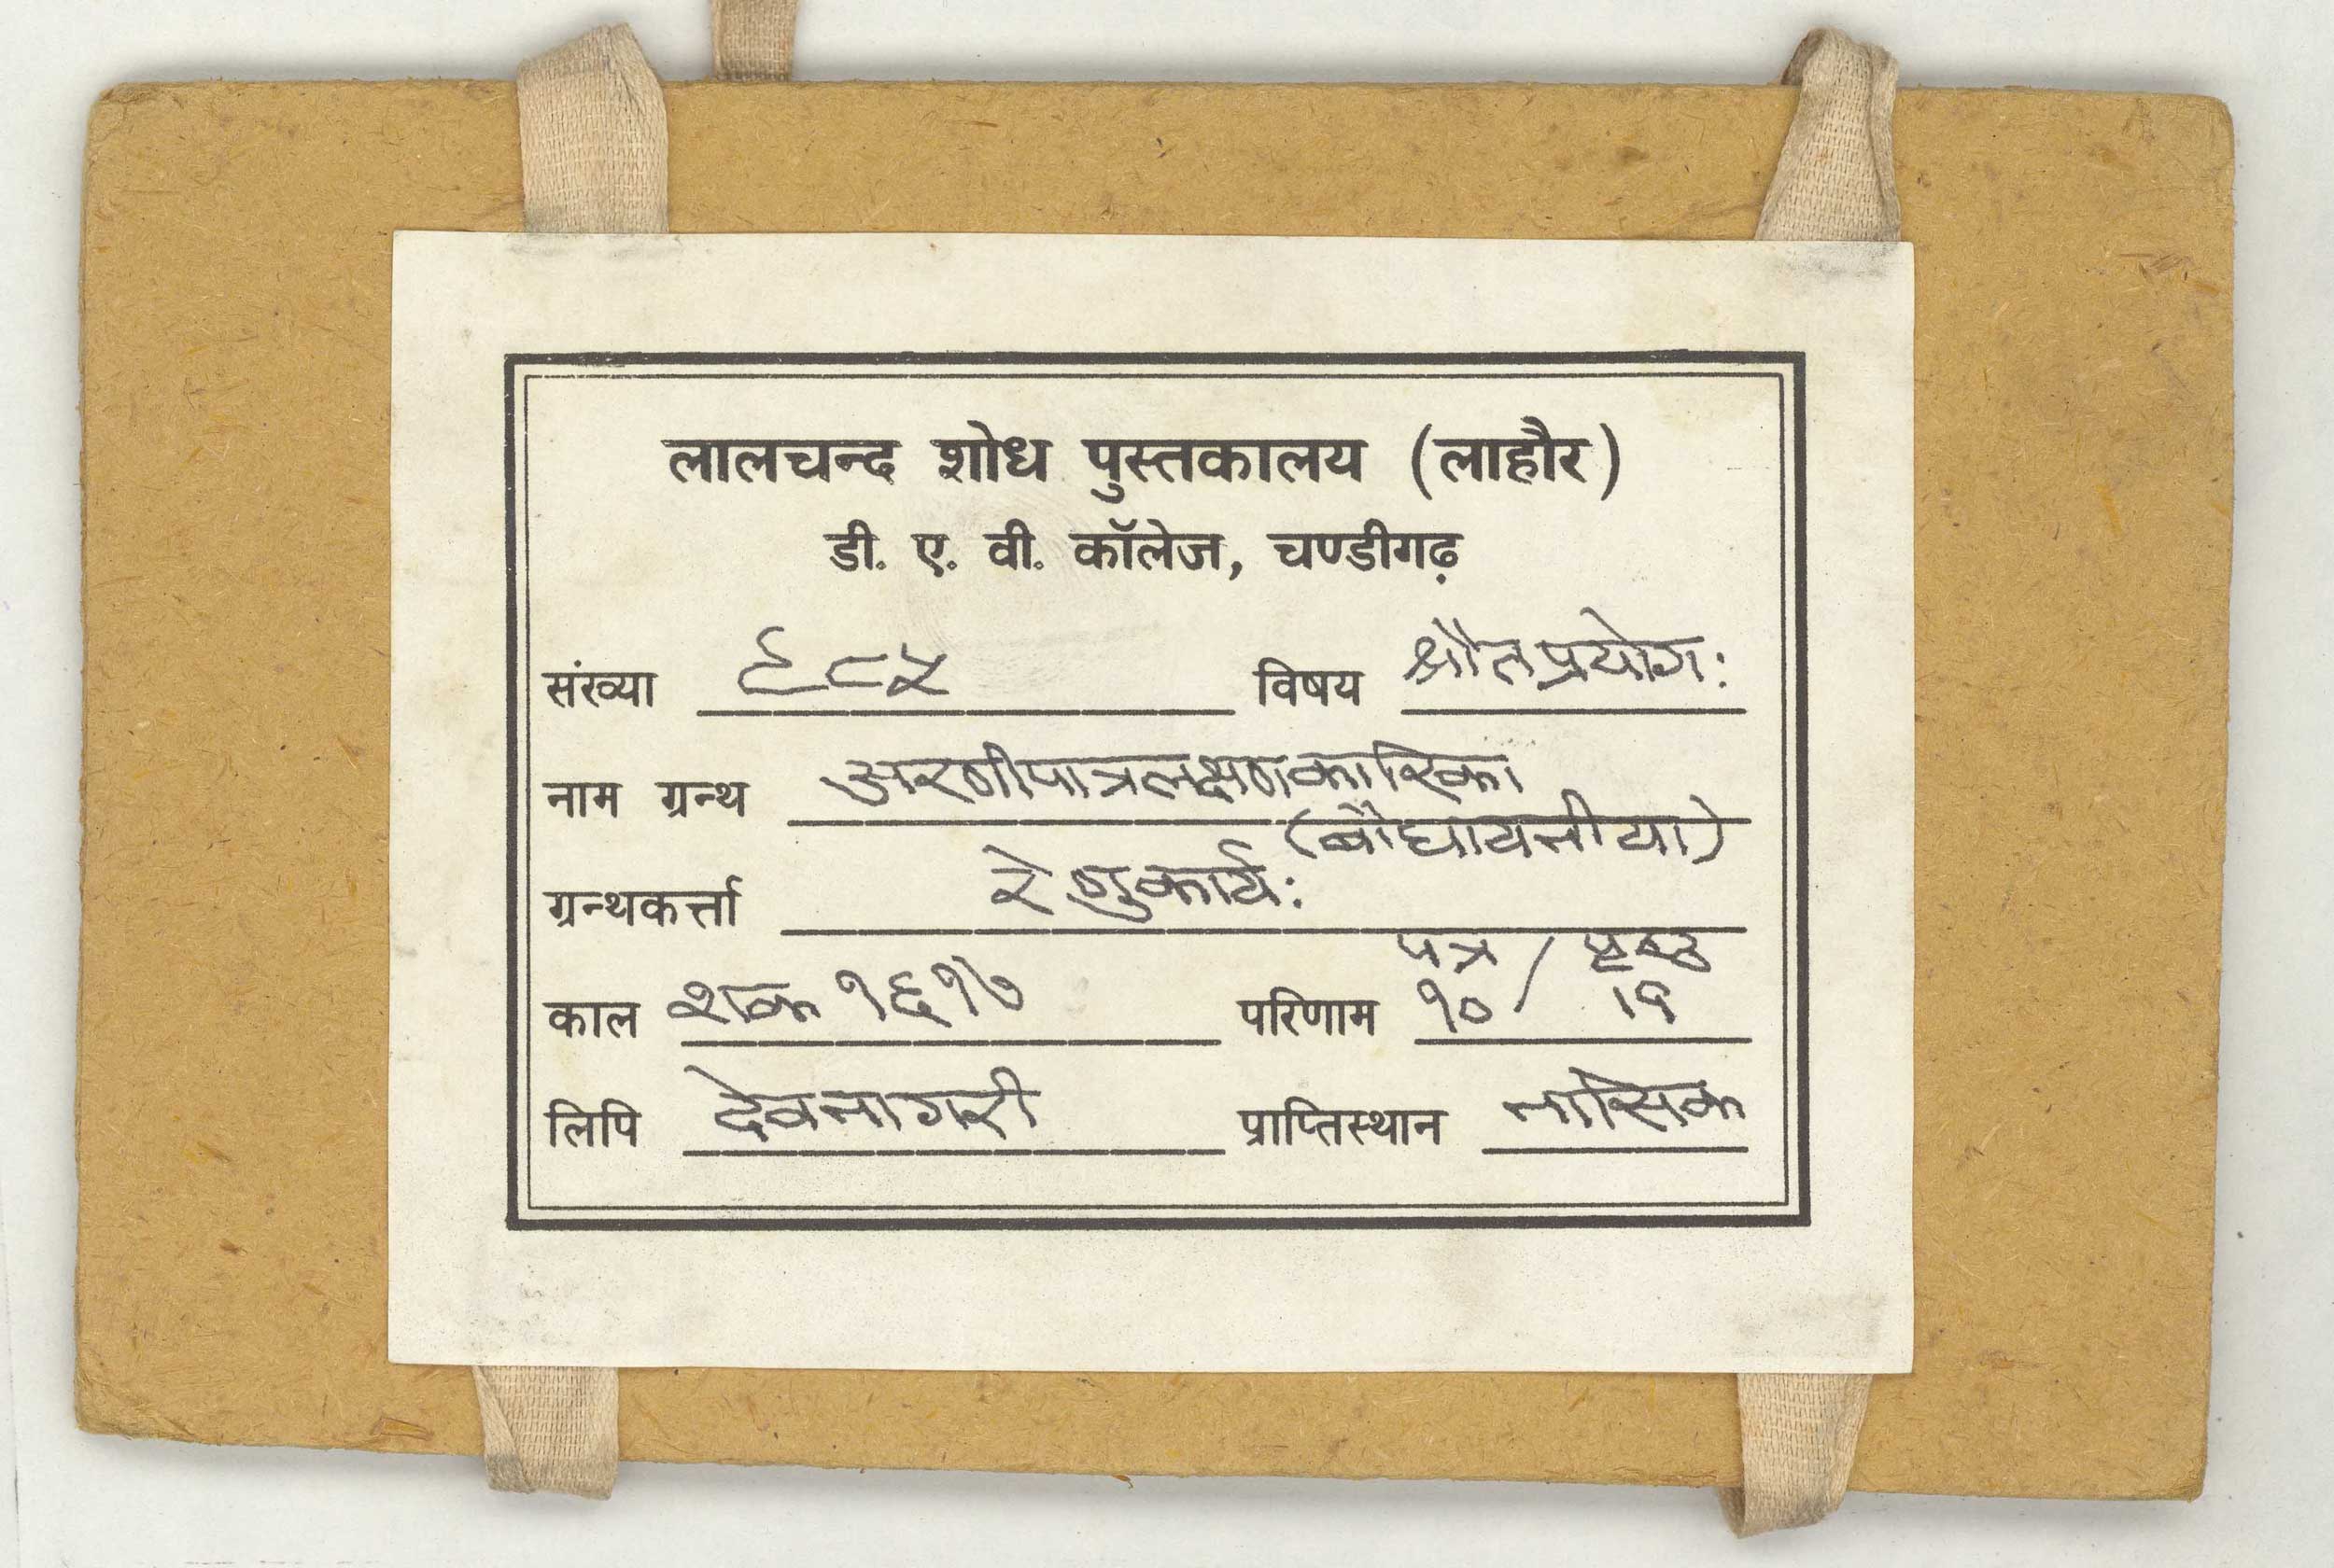 लालचन्द शोध पुस्तकालय (लाहौर)
डी. ए. वी. कॉलेज, चण्डीगढ़
संख्या ६८५ विषय श्रौतप्रयोग:
नाम ग्रन्थ अरणीपात्रलक्षणकारिका
(बौधायनीया)
ग्रन्थकर्त्ता रेणुकार्य:
पत्र / पृष्ठ
काल शक १६१७ परिणाम १० / 19
लिपि देवनागरी प्राप्तिस्थान नासिक